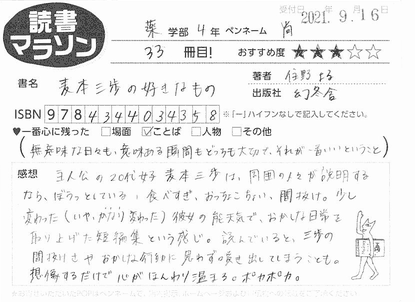 受付日 年 月 日
2021. 9. 16
読書マラソン
薬 学部 4年 ペンネーム 尚
33 冊目! おすすめ度 ★★★☆☆
書名 麦本三歩の好きなもの
著者 住野よる
出版社 幻冬舎
ISBN 9784344034358 ※「-」ハイフンなしで記入してください。
♥一番心に残った □場面 ☑ことば □人物 □その他
(無意味な日々も、意味ある瞬間もどっちも大切で、それが一番いいということ)
感想 主人公の20代女子麦本三歩は、周囲の人々が説明する
なら、ぼうっとしている、食べすぎ、おっちょこちょい、間抜け。少し
変わった(いや、かなり変わった)彼女の能天気で、おかしな日常を
取り上げた短編集という感じ。読んでいると、三歩の
間抜けさやおかしな行動に思わず突き出してしまうことも。
想像するだけで心がほんわり温まる。ポカポカ。